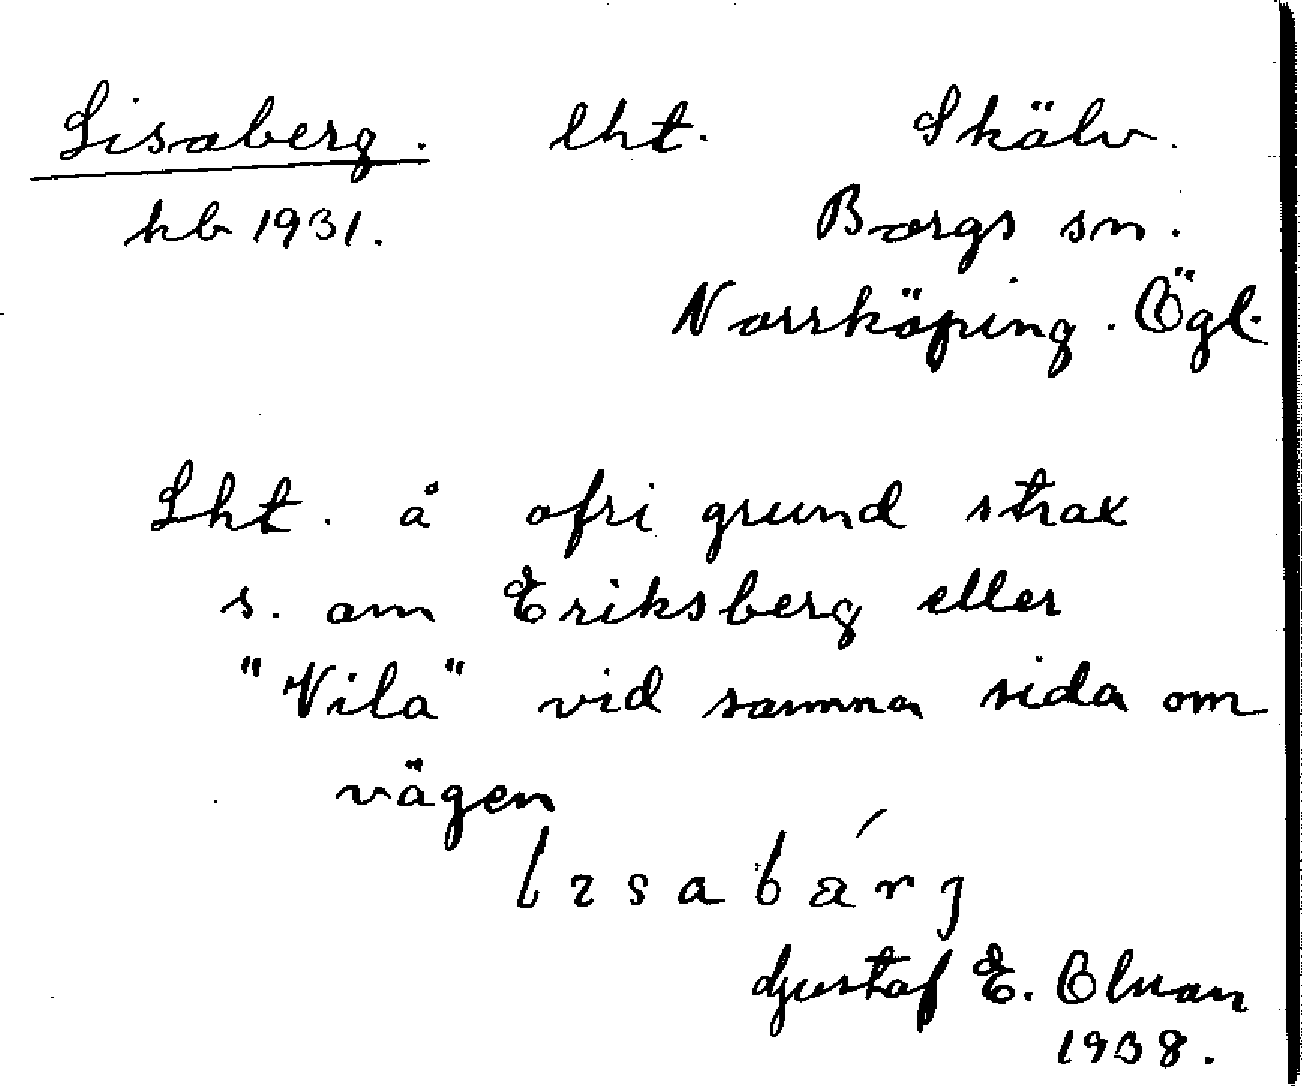 Lisaberg. lht. Skälv.
hb 1931. Borgs sn.
Norrköping. Ögl.
Lht. å ofri grund strax
s. om Eriksberg eller
"Vila" vid samma sida om
vägen
Gustaf E. Olson
1938.